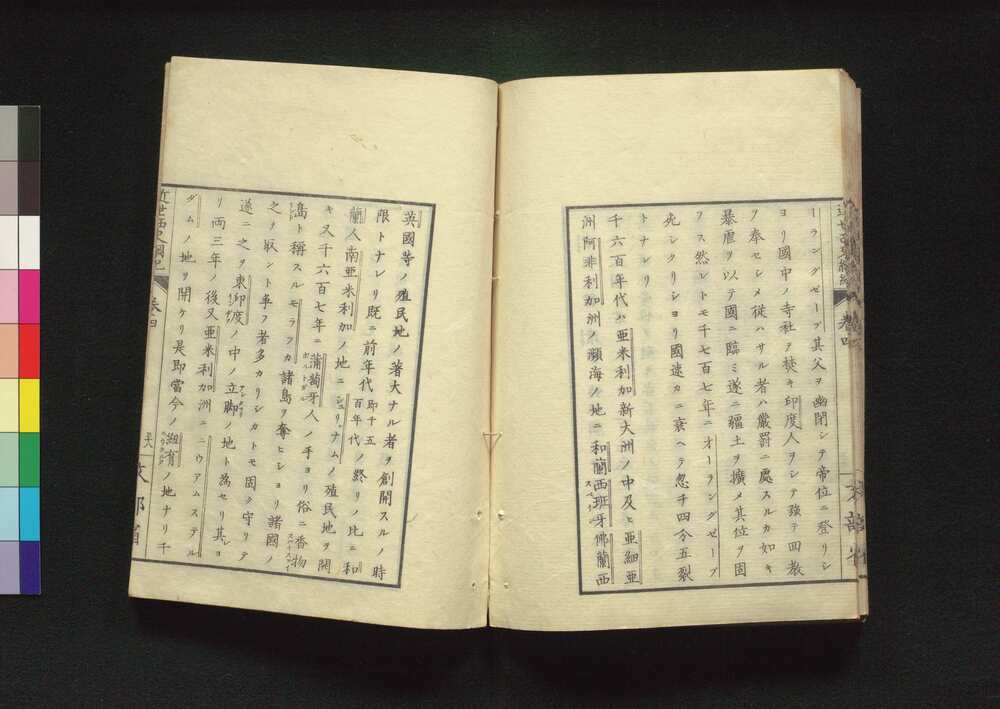 ーラングゼーブ其父ヲ幽閉シテ帝位ニ登リシ
ヨリ國中ノ寺社ヲ焚キ印度人ヲシテ強テ回教
ヲ奉セシメ從ハサル者ハ嚴罰ニ處スルカ如キ
暴虐ヲ以テ國ニ臨ミ遂ニ疆土ヲ擴メ其位ヲ固
フス然レトモ千七百七年ニオーラングゼーブ
死シタリシヨリ國速カニ衰ヘテ忽チ四分五裂
トナレリ
千六百年代ハ亜米利加新大洲ノ中及ヒ亜細亜
洲阿非利加洲ノ瀕海ノ地ニ和蘭西班牙佛蘭西
英國等ノ殖民地ノ著大ナル者ヲ創開スルノ時
限トナレリ既ニ前年代即千五百年代ノ終リノ比ニ和
蘭人南亜米利加ノ地ニシュリナムノ殖民地ヲ開
キ又千六百七年ニ葡萄牙人ノ手ヨリ俗ニ香物
島ト稱スルモラフカ諸島ヲ奪ヒシヨリ諸國ノ
之ヲ取ント事フ者多カリシカトモ固ク守リテ
遂ニ之ヲ東印度ノ中ノ立脚ノ地ト為セリ其ヨ
リ兩三年ノ後又亜米利加洲ニニウアムステル
ダムノ地ヲ開ケリ是即當今ノ紐育ノ地ナリ千
近世西史綱紀
卷四
文部省